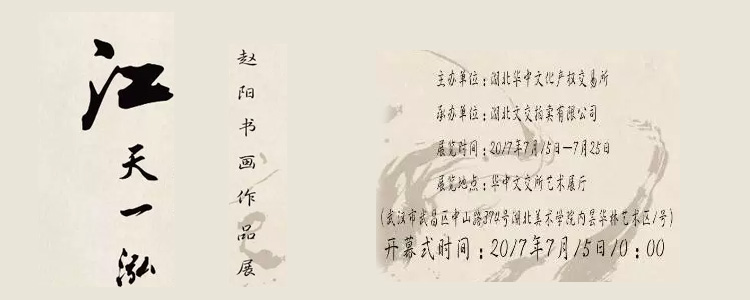 江天一泓
赵阳书画作品展
主办单位:湖北华中文化产权交易所
承办单位:湖北文交拍卖有限公司
展览时间:2017年7月15日—7月25日
展览地点:华中文交所艺术展厅
(武汉市武昌区中山路374号湖北美术学院内昙华林艺术区1号)
开幕式时间:2017年7月15日10:00